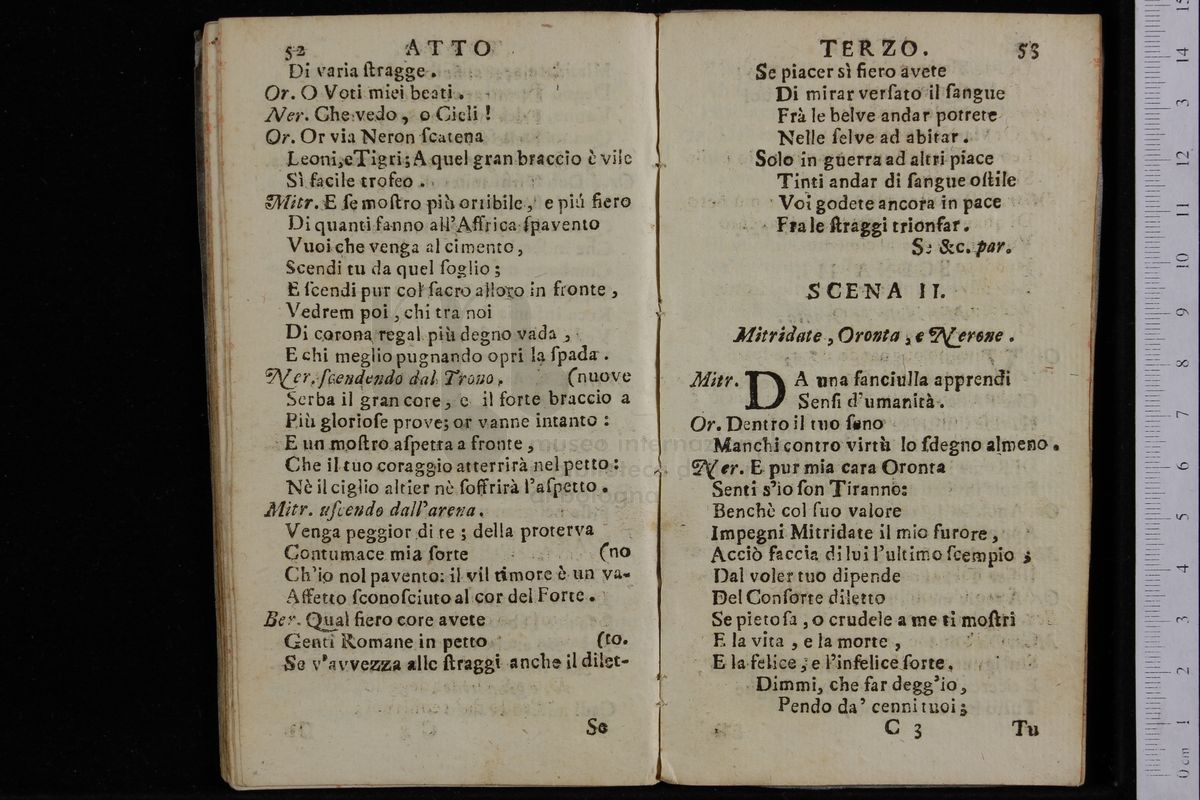 52 ATTO
Di varia ſtragge.
Or. O Voti miei beati.
Ner. Che vedo, o Cieli!
Or. Or via Neron ſcatena
Leoni, e Tigri; A quel gran braccio è vile
Sì facile trofeo.
Mitr. E ſe moſtro più orribile, e più fiero
Di quanti fanno all'Affrica ſpavento
Vuoi che venga al cimento,
Scendi tu da quel ſoglio;
E ſcendi pur col ſacro alloro in fronte,
Vedrem poi, chi tra noi
Di corona regal più degno vada,
E chi meglio pugnando opri la ſpada.
Ner. ſcendendo dal Trono. (nuove
Serba il gran core, e il forte braccio a
Più glorioſe prove; or vanne intanto:
E un moſtro aſpetta a fronte,
Che il tuo coraggio atterrirà nel petto:
Nè il ciglio altier nè ſoffrirà l'aſpetto.
Mitr. uſcendo dall'arena.
Venga peggior di te; della proterva
Contumace mia ſorte (no
Ch'io nol pavento: il vil timore è un va-
Affetto ſconoſciuto al cor del Forte.
Ber. Qual fiero core avete
Genti Romane in petto (to.
Se v'avvezza alle ſtraggi anche il dilet-
Se
TERZO. 53
Se piacer sì fiero avete
Di mirar verſato il ſangue
Frà le belve andar potrete
Nelle ſelve ad abitar.
Solo in guerra ad altri piace
Tinti andar di ſangue oſtile
Voi godete ancora in pace
Fra le ſtraggi trionfar.
Se &c. par.
SCENA II.
Mitridate, Oronta, e Nerone.
Mitr. DA una fanciulla apprendi
Senſi d'umanità.
Or. Dentro il tuo ſeno
Manchi contro virtù lo ſdegno almeno.
Ner. E pur mia cara Oronta
Senti s'io ſon Tiranno:
Benchè col ſuo valore
Impegni Mitridate il mio furore,
Acciò faccia di lui l'ultimo ſcempio;
Dal voler tuo dipende
Del Conſorte diletto
Se pietoſa, o crudele a me ti moſtri
E la vita, e la morte,
E la felice, e l'infelice ſorte.
Dimmi, che far degg'io,
Pendo da' cenni tuoi;
C 3 Tu
museo internaz
bologna